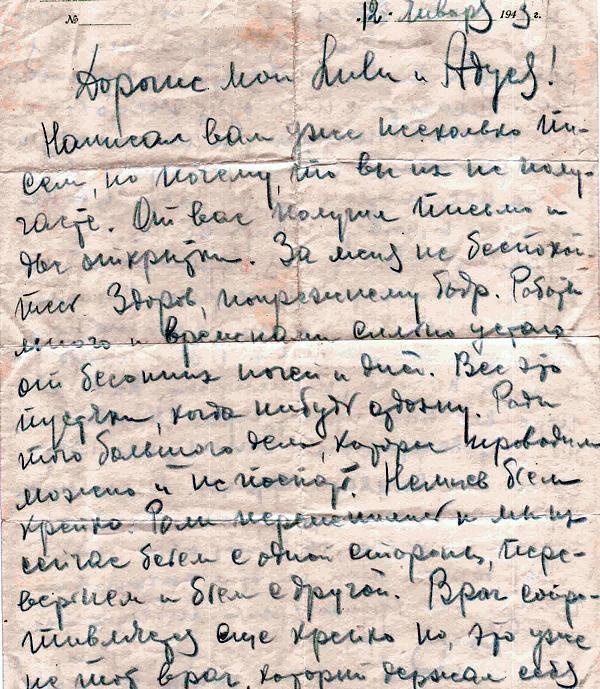 № 12 Января 1943 г.
Дорогие мои Киви и Адуся!
Написал вам уже несколько пи-
сем, но почему, то вы их не полу-
чаете. От вас получил письмо и
две открытки. За меня не беспокой-
тесь. Здоров, попрежнему бодр. Работы
много и временами сильно устаю
от бесонных ночей и дней. Все это
пустяки, когда нибудь отдохну. Ради
того большого дела, которы проводим
можно и не поспать. Немцев бьем
крепко. Роли переменились и мы их
сейчас бьем с одной стороны, пере-
вернем и бьем с другой. Враг сопро-
тивляется еще крепко но, это уже
не тот враг, который держал себя